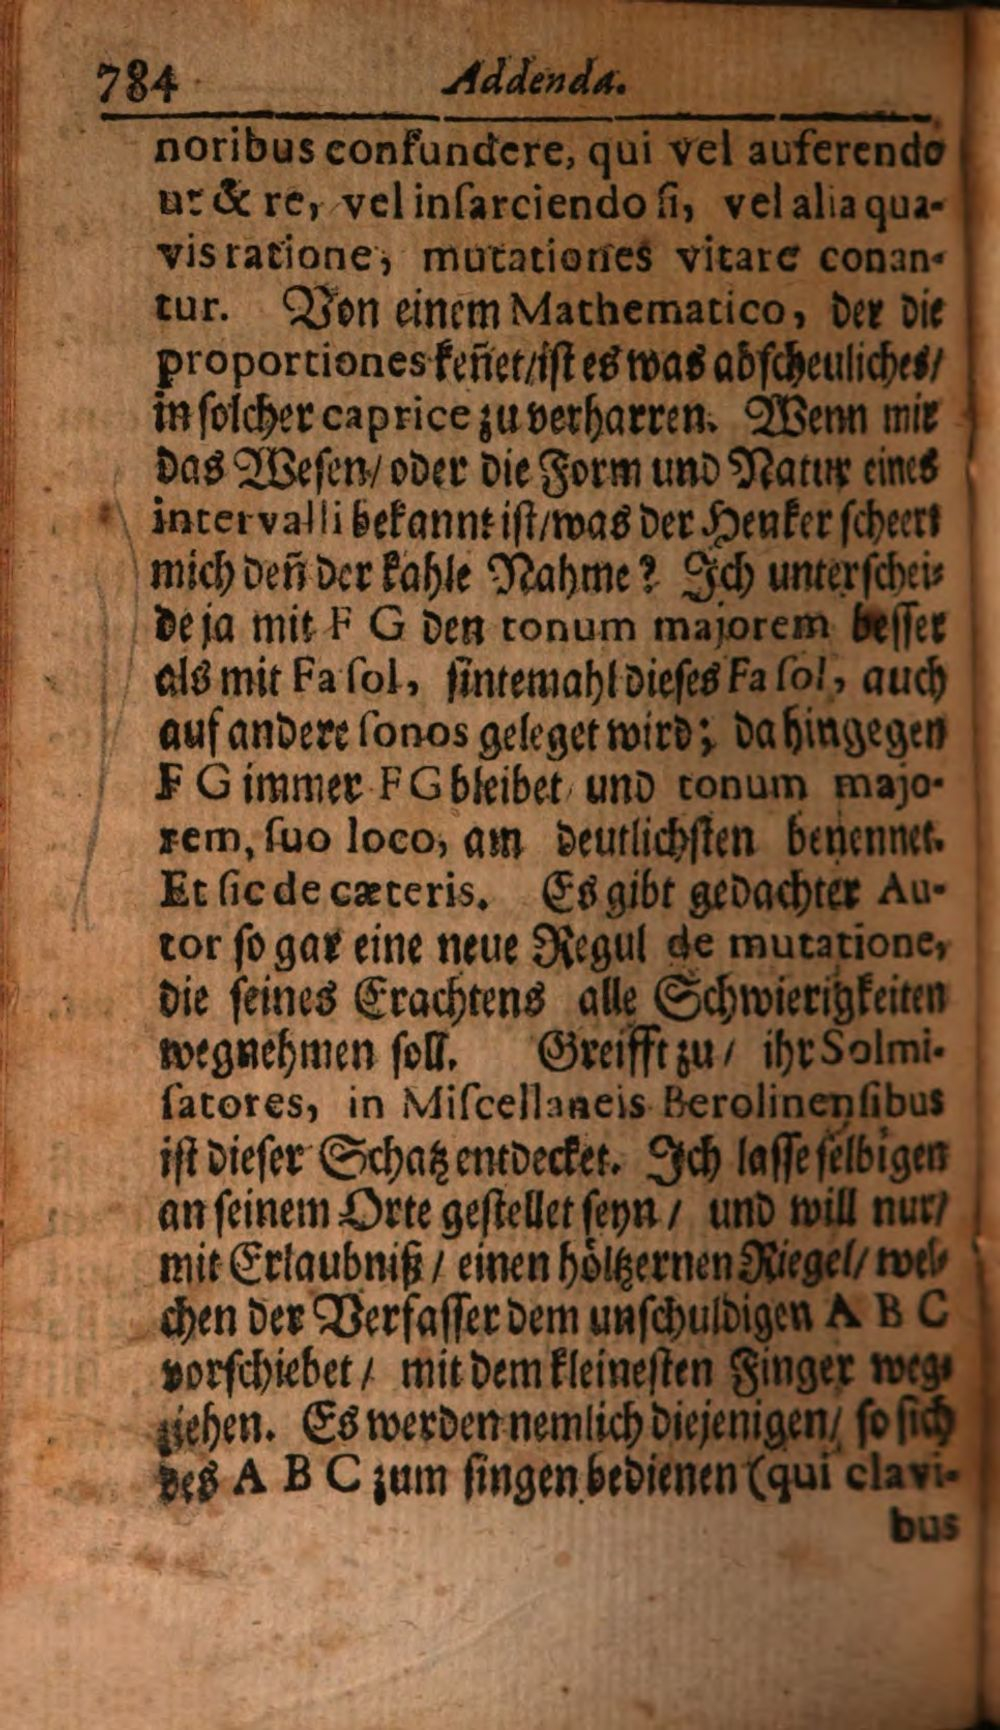 784 Addenda.
noribus confundere, qui vel auferendo
ut & re, vel inſarciendo ſi, vel alia qua-
vis ratione, mutationes vitare conan-
tur. Von einem Mathematico, der die
proportiones keñet/iſt es was abſcheuliches/
in ſolcher caprice zu verharren. Wenn mir
das Weſen/ oder die Form und Natur eines
intervalli bekannt iſt/was der Henker ſcheert
mich deñ der kahle Nahme? Ich unterſchei-
de ja mit F G den tonum majorem beſſer
als mit Fa ſol, ſintemahl dieſes Fa ſol, auch
auf andere ſonos geleget wird; da hingegen
F G immer F G bleibet/ und tonum majo-
rem, ſuo loco, am deutlichſten benennet.
Et ſic de cæteris. Es gibt gedachter Au-
tor ſo gar eine neue Regul de mutatione,
die ſeines Erachtens alle Schwierigkeiten
wegnehmen ſoll. Greifft zu/ ihr Solmi-
ſatores, in Miſcellaneis Berolinenſibus
iſt dieſer Schatz entdecket. Ich laſſe ſelbigen
an ſeinem Orte geſtellet ſeyn/ und will nur/
mit Erlaubniß/ einen höltzernen Riegel/ wel-
chen der Verfaſſer dem unſchuldigen A B C
vorſchiebet/ mit dem kleineſten Finger weg-
ziehen. Es werden nemlich diejenigen/ ſo ſich
des A B C zum ſingen bedienen (qui clavi-
bus